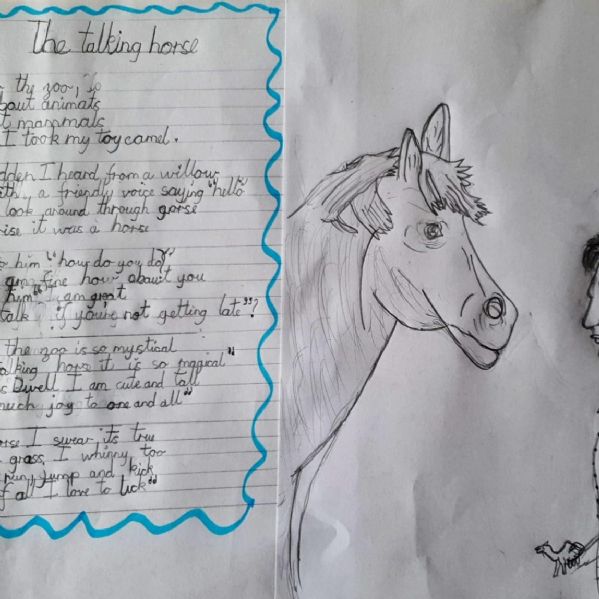 The talking horse
the zoo, so
bout animals
t mammals
I took my toy camel.
dden I heard, from a willow
ith, a friendly voice saying "hello"
look around through gorse
rise it was a horse
him "how do you do?"
am fine how about you
him" I am great
talk if you're not getting late"?
the zoo is so mystical
alking horse it is so magical"
is Dwell I am cute and tall
much joy to one and all"
rse I swear its true
grass, I whinny too
run, jump and kick
f all I love to lick"